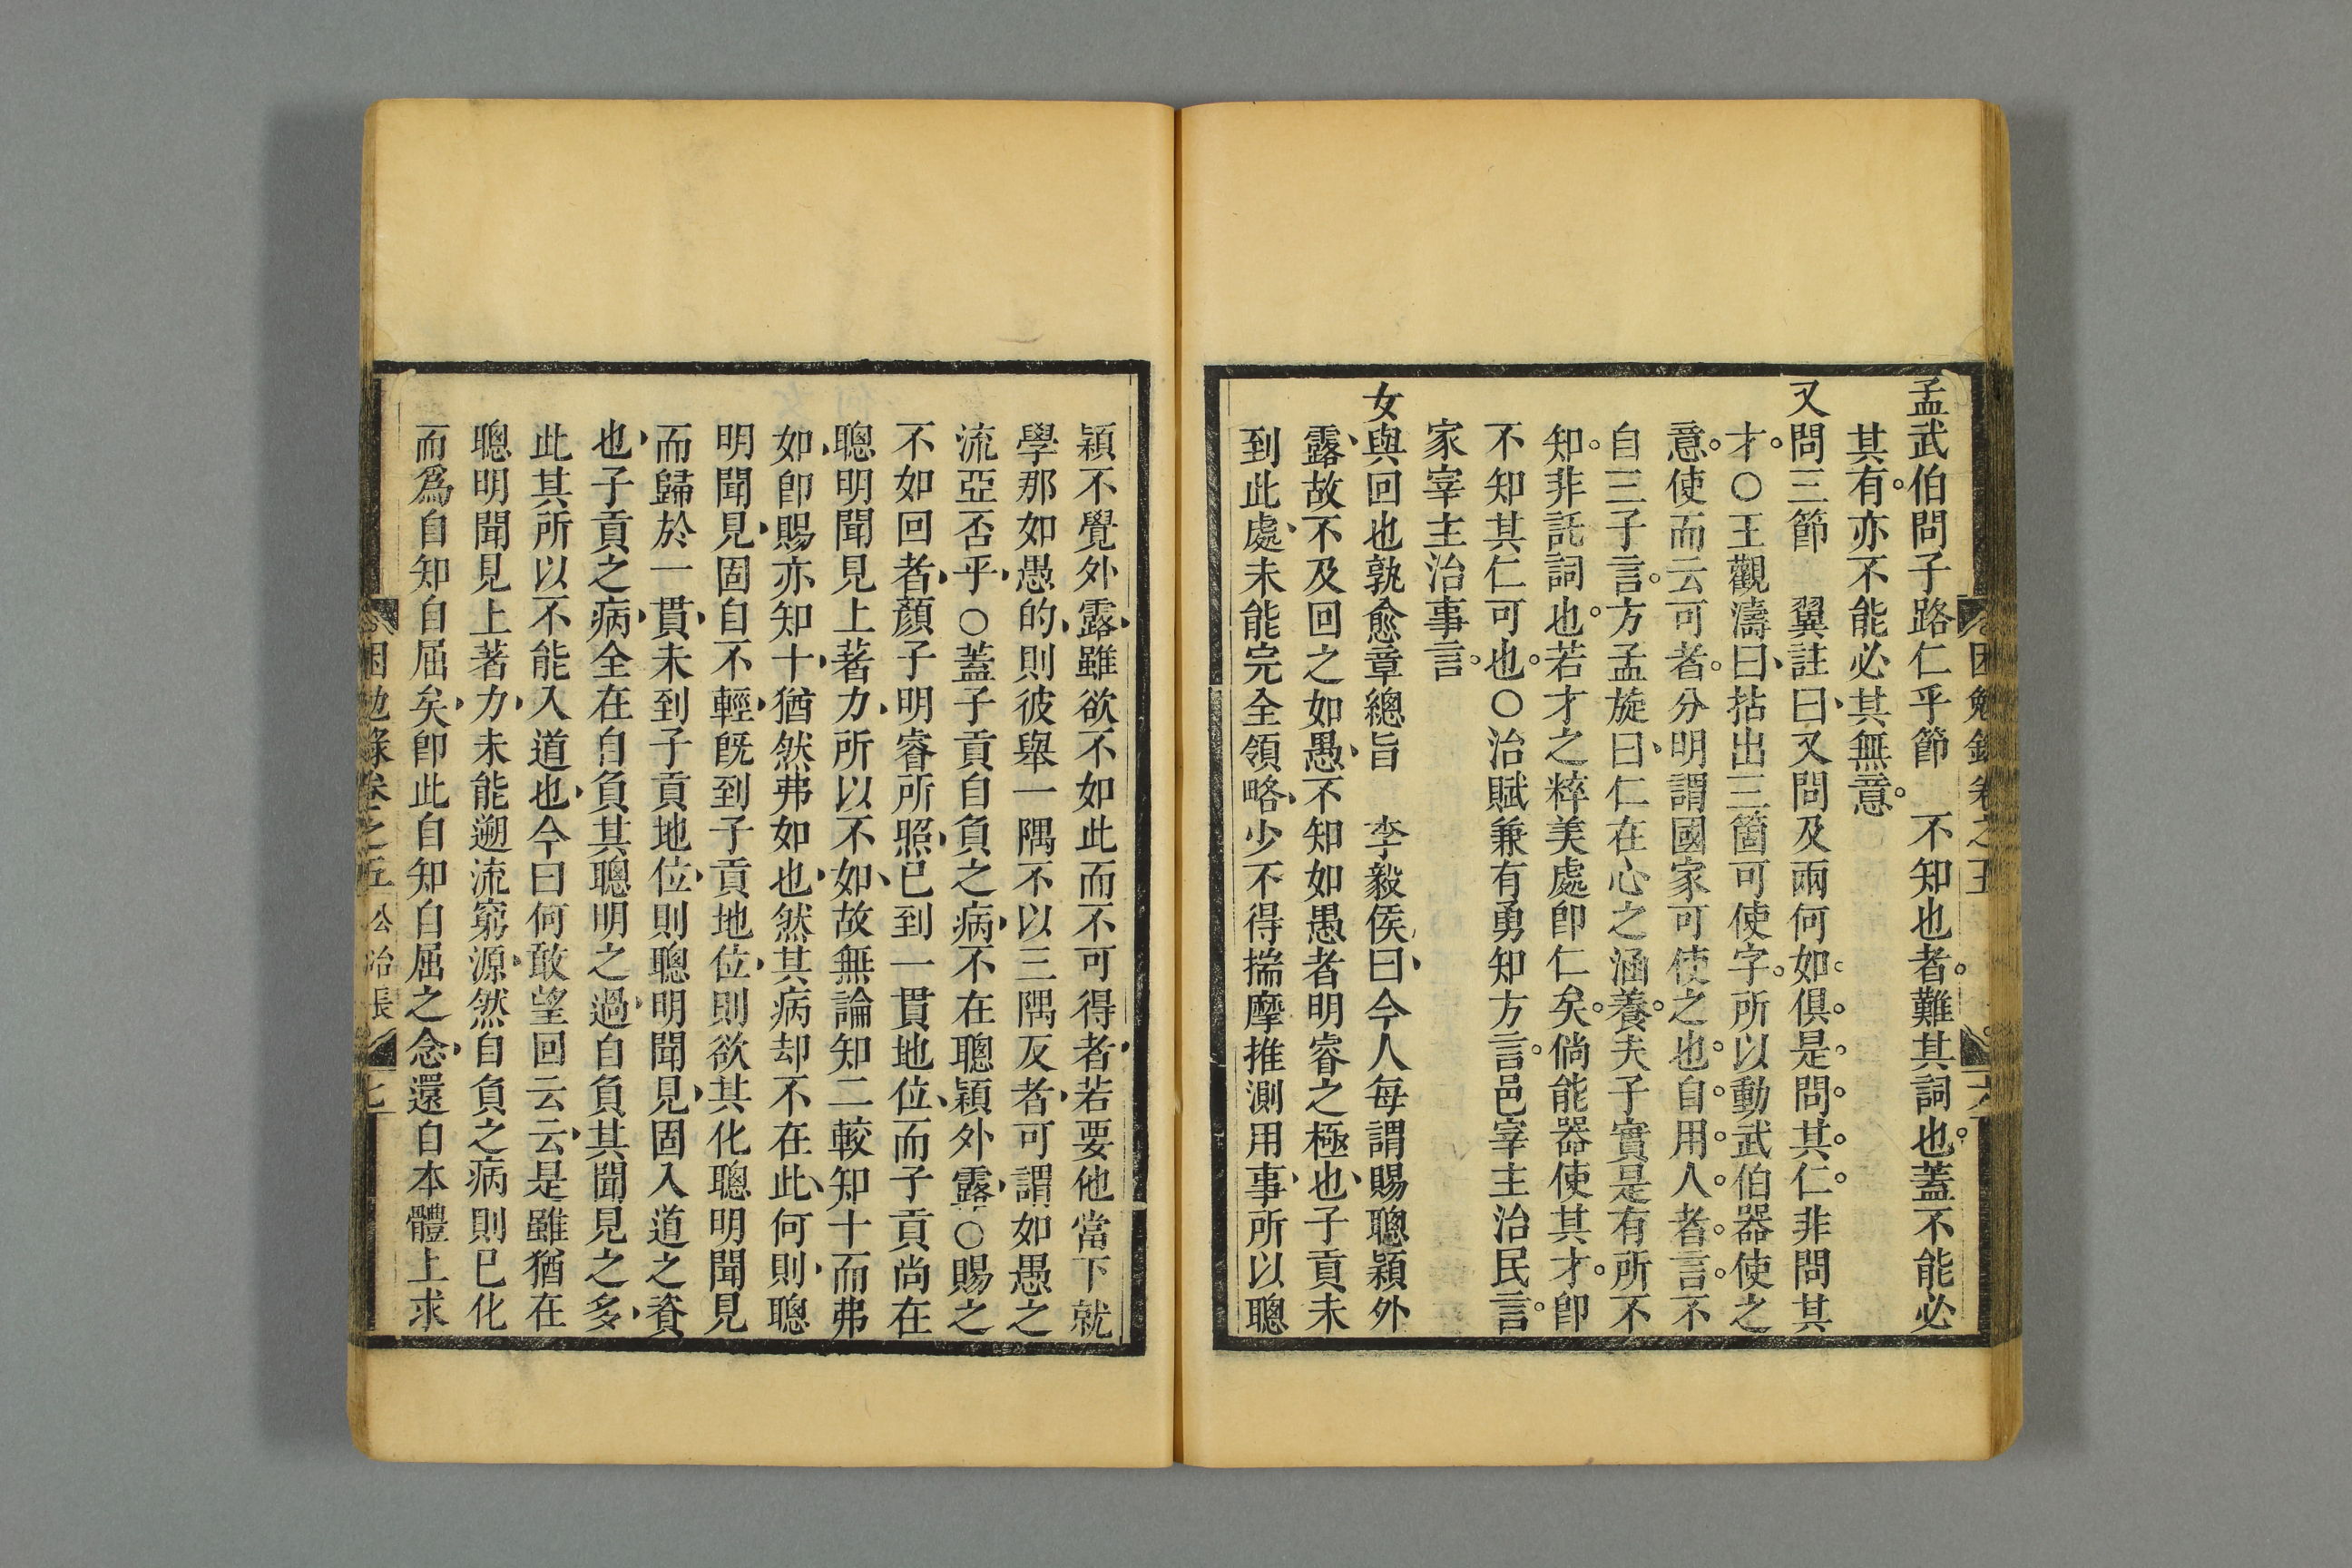 孟武伯問子路仁乎節　不知也者。難其詞也。蓋不能必
其有。亦不能必其無意。
又問三節　翼註曰、又問及兩何如。俱。是。問。其。仁。非問其
才。○王觀濤曰、拈出三箇可使字。所以動武伯器使之
意。使而云可者。分明謂國家可使之也。自。用。人。者。言。不
自三子言。方孟旋曰、仁在心之涵養。夫子實是有所不
知。非託詞也。若才之粹美處卽仁矣。倘能器使其才。卽
不知其仁可也。○治賦兼有勇知方言。邑宰主治民言。
家宰主治事言。
女與回也孰愈章總旨　李毅侯曰、今人每謂賜聰穎外
露、故不及回之如愚、不知如愚者明睿之極也、子貢未
到此處、未能完全領略、少不得揣摩推測用事、所以聰
困勉錄卷之五　六
穎不覺外露、雖欲不如此而不可得者、若要他當下就
學那如愚的、則彼舉一隅不以三隅反者、可謂如愚之
流亞否乎、○蓋子貢自負之病、不在聰穎外露、○賜之
不如回者、顏子明睿所照、已到一貫地位、而子貢尚在
聰明聞見上著力、所以不如、故無論知二較知十而弗
如、卽賜亦知十、猶然弗如也、然其病却不在此、何則、聰
明聞見、固自不輕、旣到子貢地位、則欲其化聰明聞見
而歸於一貫、未到子貢地位、則聰明聞見、固入道之資
也、子貢之病、全在自負其聰明之過、自負其聞見之多、
此其所以不能入道也、今曰何敢望回云云、是雖猶在
聰明聞見上著力、未能遡流窮源、然自負之病則已化
而爲自知自屈矣、卽此自知自屈之念、還自本體上求
困勉錄卷之五　公冶長　七